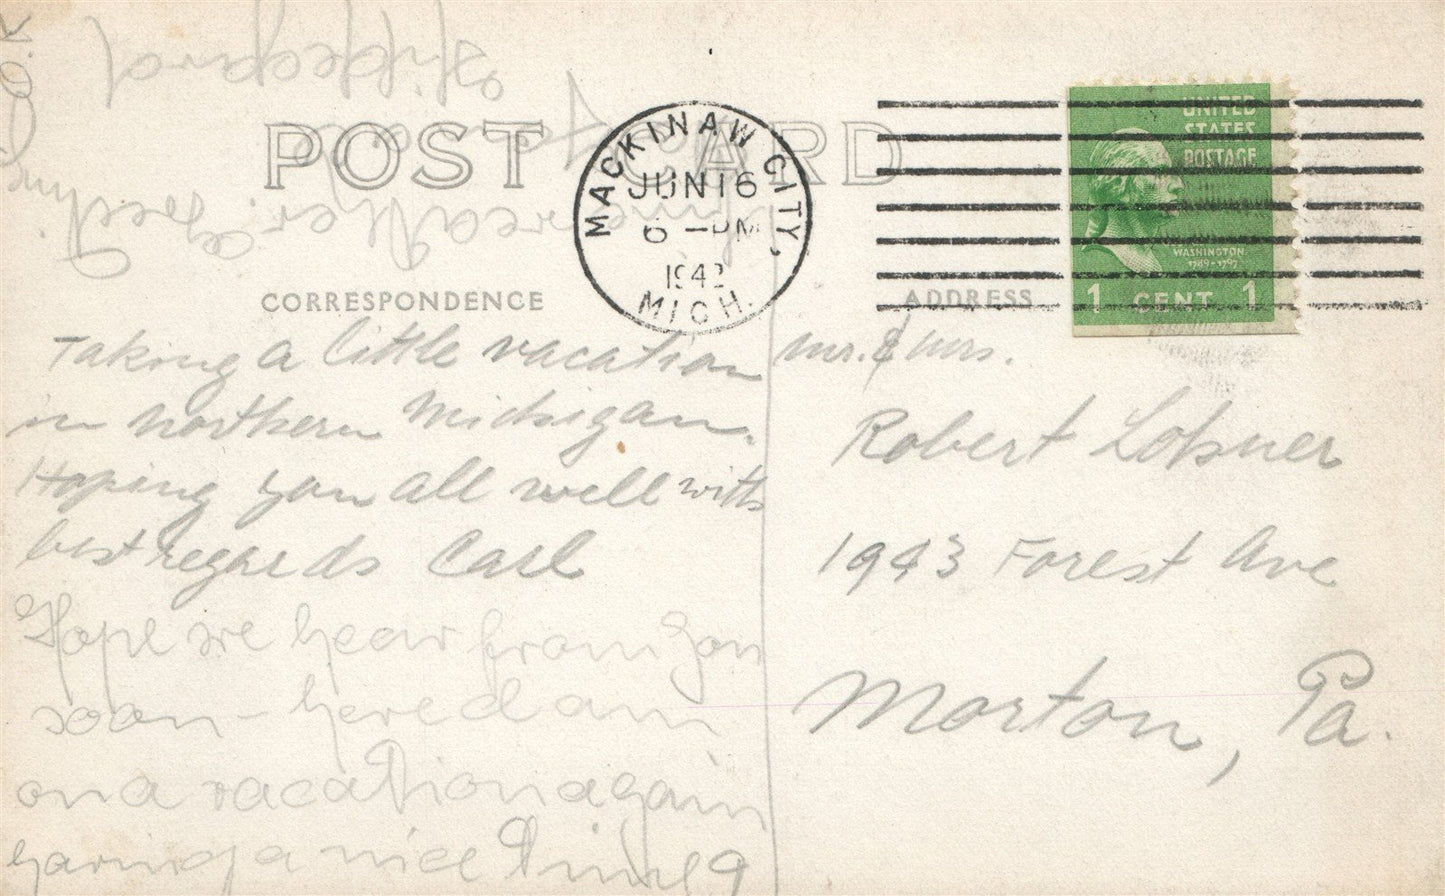 POST CARD
MACKINAW CITY,
JUN 16
6 - PM
1942
MICH.
UNITED
STATES
POSTAGE
WASHINGTON
1789-1797
1 CENT 1
CORRESPONDENCE
ADDRESS
Taking a little vacation
in northern Michigan.
Hoping you all well with
best regards Carl
Hope we hear from you
soon - here I am
on a vacation again
having a nice time
weather.
Hildegard
O.K
Mr. & Mrs.
Robert Lobner
1943 Forest Ave
Morton, Pa.